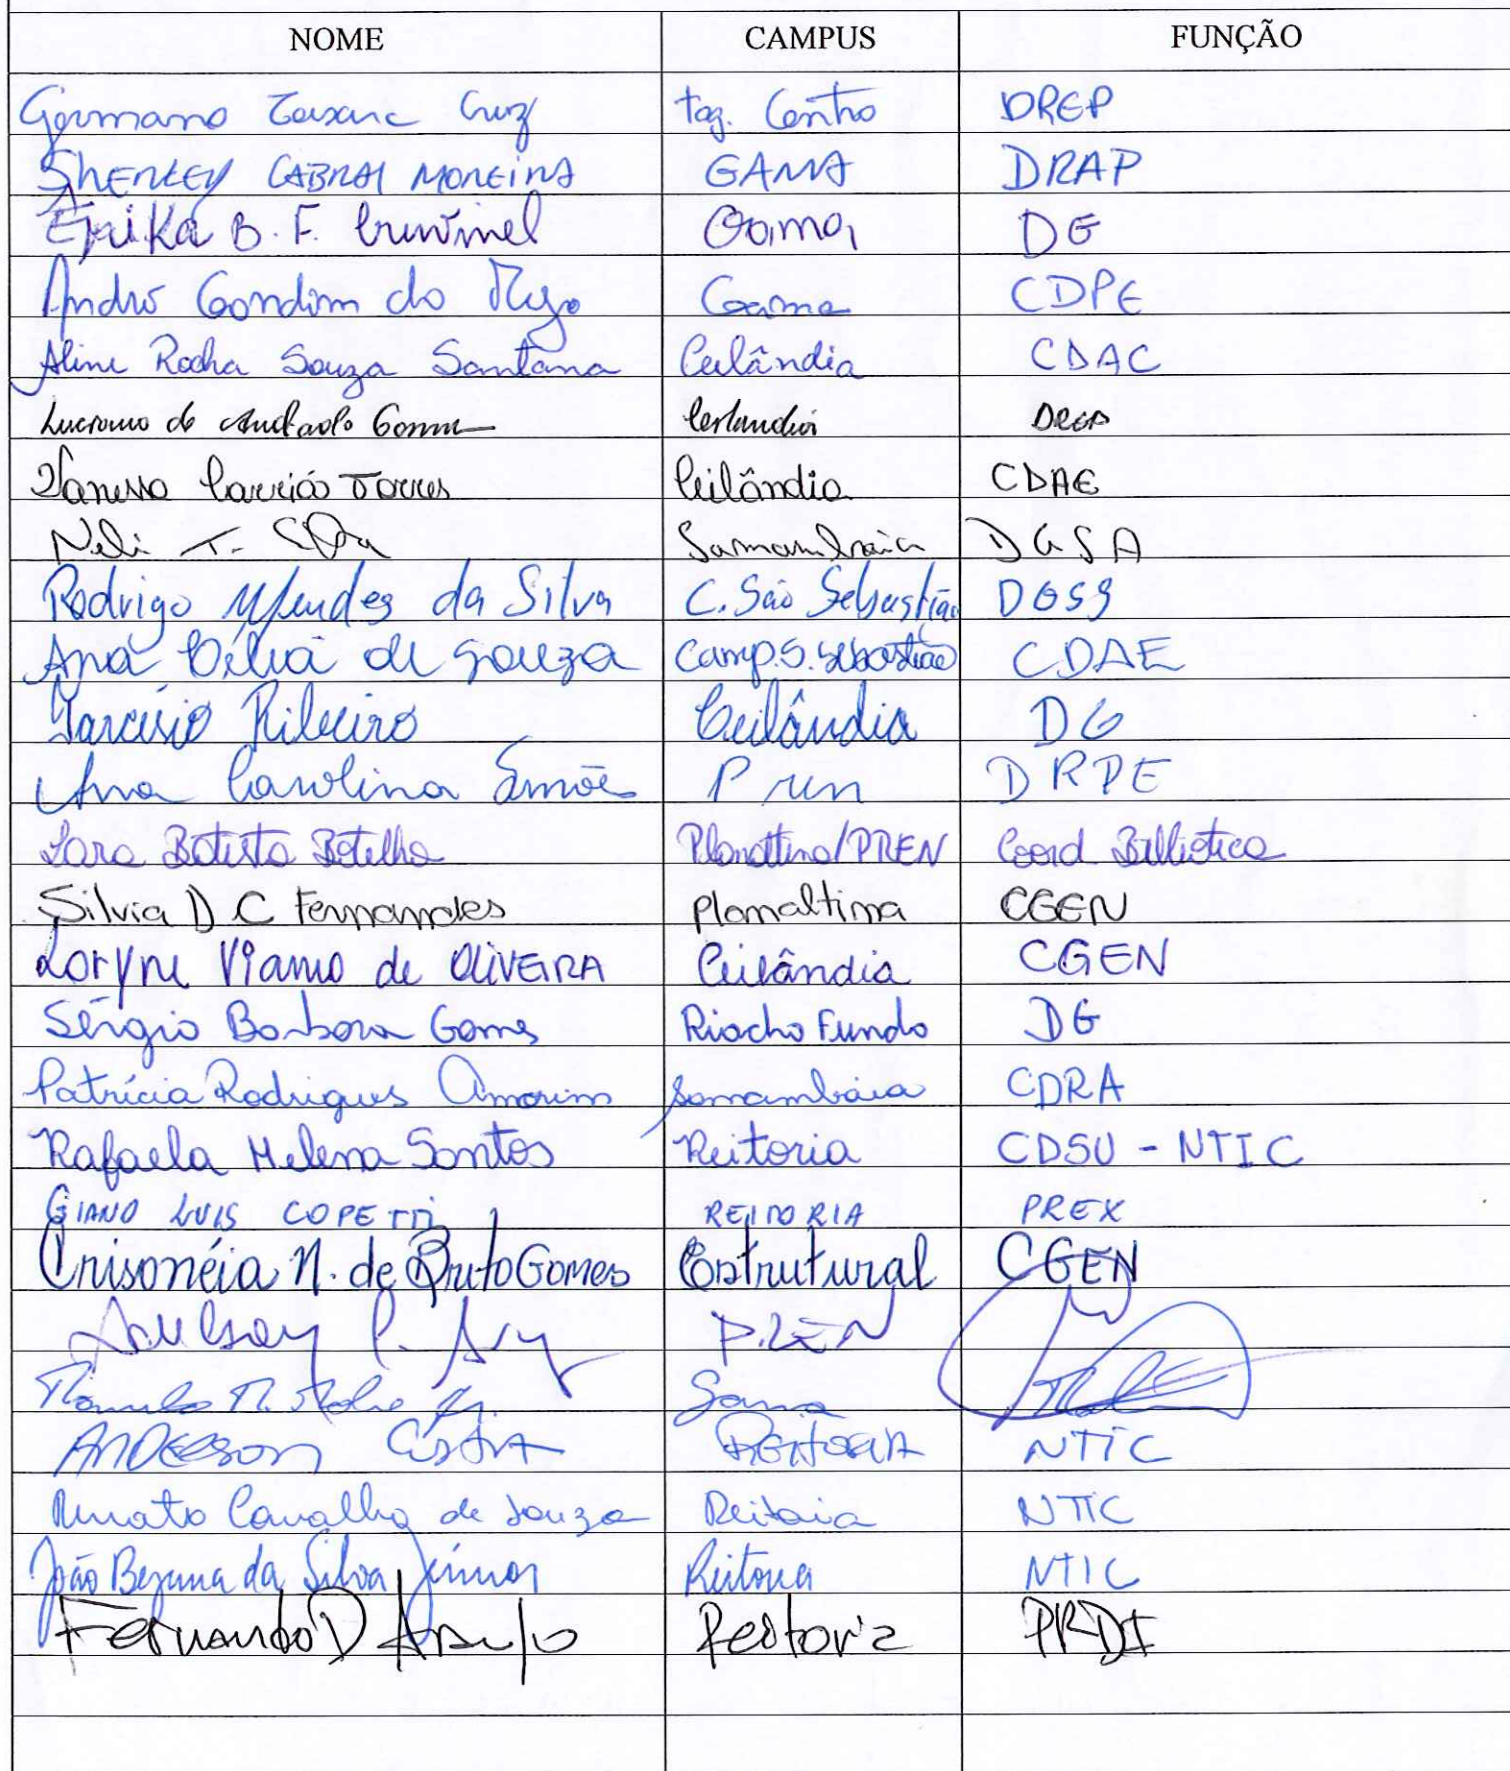 NOME CAMPUS FUNÇÃO
Germano Cruz Tag. Centro DREP
SHERLEY CABRAL MOREIRA GAMA DRAP
Erika B. F. Cruvinel Gama DG
André Gondim do Rego Gama CDPE
Aline Rocha Souza Santana Ceilândia CDAC
Luciano de Andrade Gomes Ceilandia DREP
Vanessa Carrião Torres Ceilândia CDAE
Neli T. Silva Samambaia DGSA
Rodrigo Mendes da Silva C. São Sebastião DGSS
Ana Célia de Souza Camp. S. Sebastião CDAE
Tarcísio Ribeiro Ceilândia DG
Ana Carolina Simões Pren DRPE
Lara Batista Botelho Planaltina/PREN Coord Biblioteca
Silvia D C Fernandes Planaltina CGEN
Loryne Viana de OLIVEIRA Ceilândia CGEN
Sérgio Barbosa Gomes Riacho Fundo DG
Patrícia Rodrigues Amorim Samambaia CDRA
Rafaela Helena Santos Reitoria CDSU - NTIC
GIANO LUIS COPETTI REITORIA PREX
Crisonéia N. de Brito Gomes Estrutural CGEN
PREN
Gama
ANDERSON COSTA REITORIA NTIC
Renato Carvalho de Souza Reitoria NTIC
João Bezerra da Silva Júnior Reitoria NTIC
Fernando D Araujo Reitoria PRDI